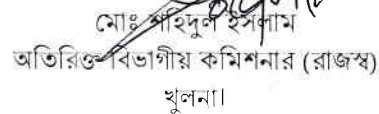 মোঃ শহিদুল ইসলাম
অতিরিক্ত বিভাগীয় কমিশনার (রাজস্ব)
খুলনা।